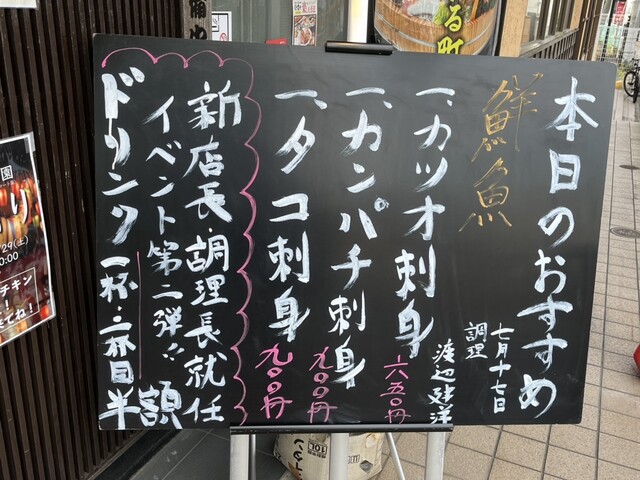 本日のおすすめ
七月十七日
調理
鮮魚
一、カツオ刺身
六五〇円
一、カンパチ刺身
九〇〇円
一、タコ刺身
九〇〇円
新店長・調理長就任
イベント第二弾!!
ドリンク一杯・二杯目半額
る町
園
29(土)
チキン
てね!